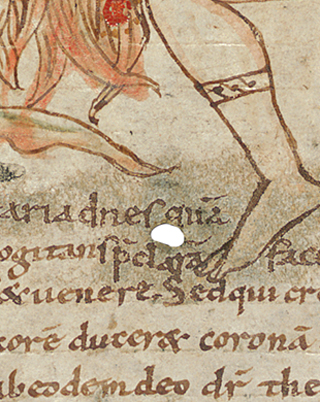 ariadnes quā
ogitans p̄clarā face
& uenere. Sed qui cre
corē ducer& coronā
ab eodem deo dr̄ the